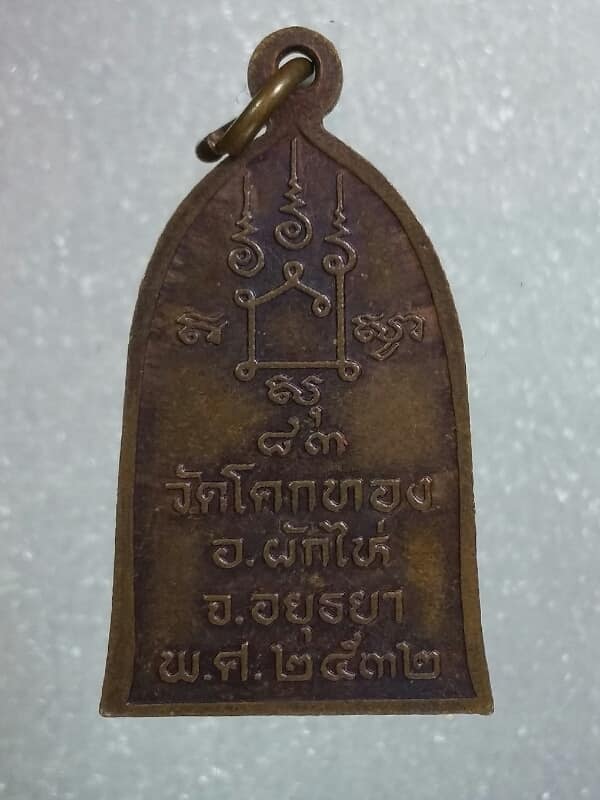 ๘๓
วัดโคกทอง
อ.ผักไห่
จ.อยุธยา
พ.ศ.๒๕๓๒